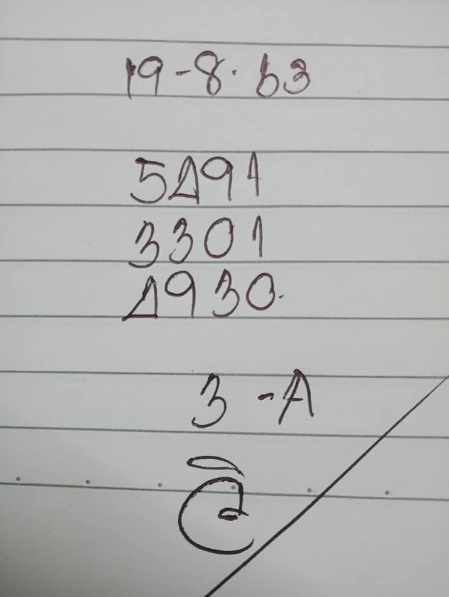 19-8.63
5491
3301
4930.
3-A